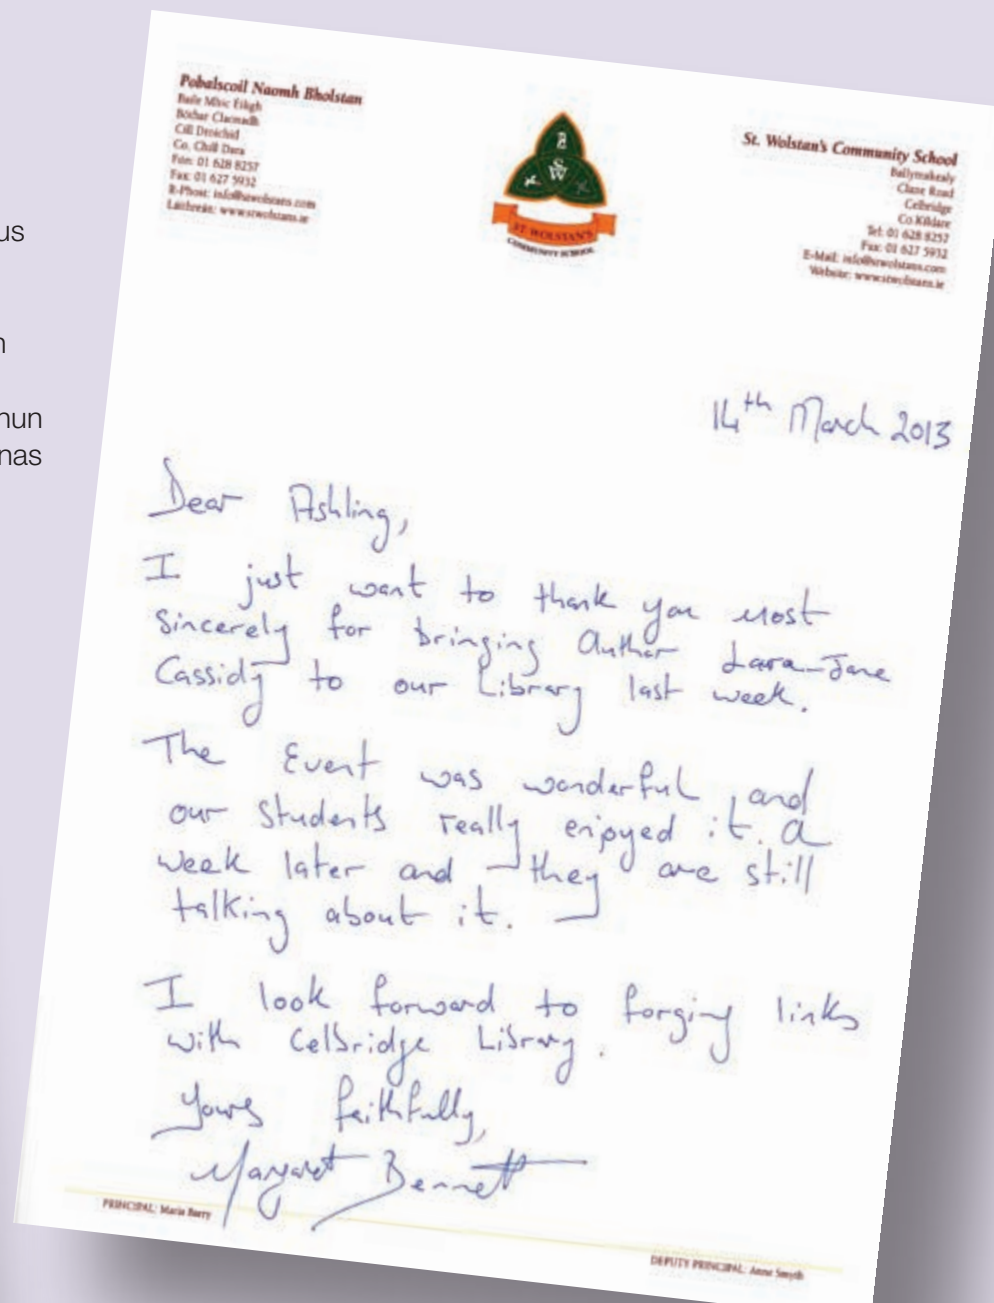 us
n
hun
nas
Pobalscoil Naomh Bholstan
Baile Mhic Éiligh
Bóthar Claonadh
Cill Droichid
Co. Chill Dara
Fón: 01 628 8257
Fax: 01 627 5932
R-Phost: info@stwolstans.com
www.stwolstans.ie
SW
ST WOLSTAN'S
COMMUNITY SCHOOL
St. Wolstan's Community School
Ballymakealy
Clane Road
Celbridge
Co Kildare
Tel: 01 628 8257
Fax: 01 627 5932
E-Mail: info@stwolstans.com
Website: www.stwolstans.ie
14th March 2013
Dear Ashling,
I just want to thank you most
Sincerely for bringing Author Lara-Jane
Cassidy to our Library last week.
The Event was wonderful and
our students really enjoyed it. A
week later and they are still
talking about it.
I look forward to forging links
with Celbridge Library.
Yours faithfully,
Margaret Bennett
PRINCIPAL: Maria Barry
DEPUTY PRINCIPAL: Anne Smyth